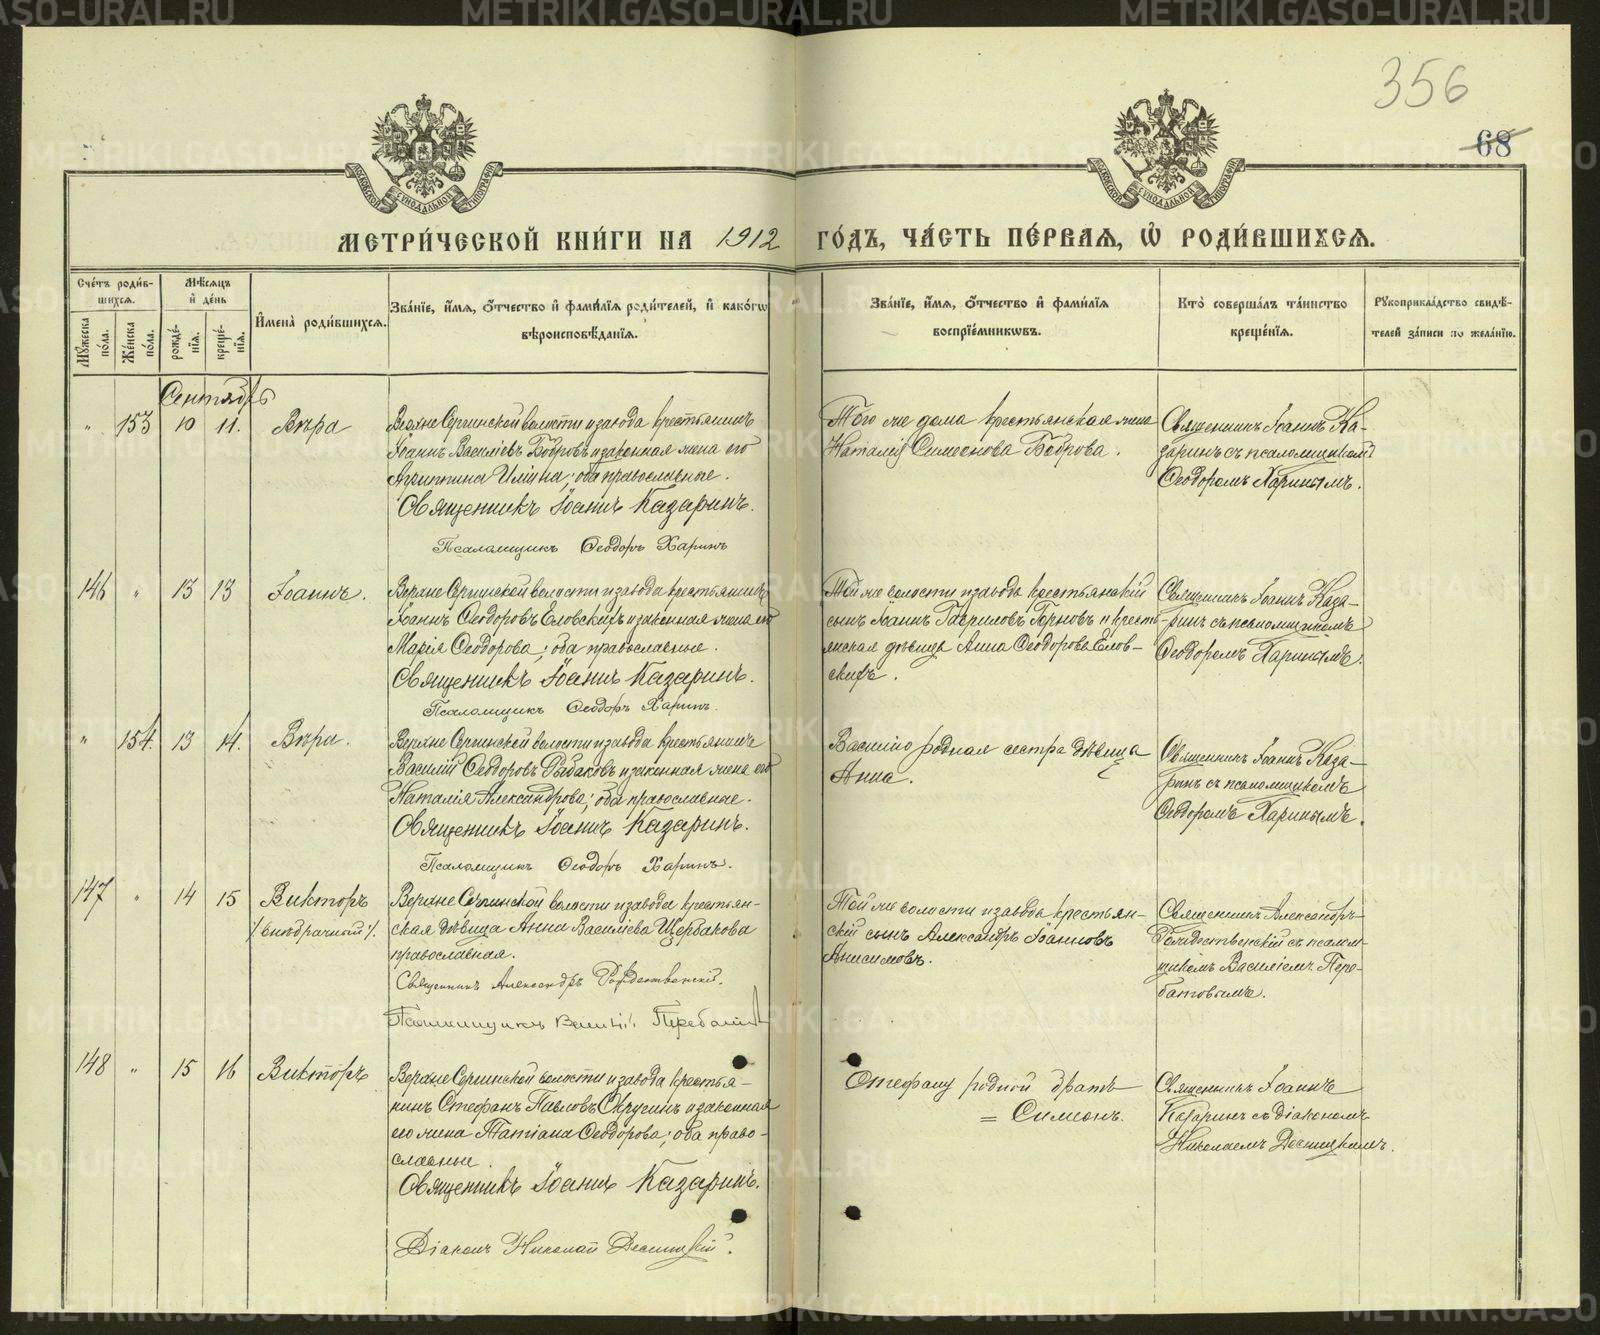 356
68
МЕТРИ́ЧЕСКОЙ КНИ́ГИ НА 1912 ГО́ДЪ, ЧА́СТЬ ПЕ́РВАЯ, Ѡ҆ РОДИ́ВШИХСЯ.
Сче́тъ роди́в-
шихся.
Мѣ́сяцъ
и҆ де́нь
Мꙋ́жеска по́ла.
Же́нска по́ла.
рожде́-
нїя.
креще́-
нїя.
И҆мена̀ роди́вшихся.
Зва́нїе, и҆́мя, ѻ҆́тчество и҆ фами́лїя роди́телей, и҆ како́гѡ
вѣроисповѣ́данїя.
Зва́нїе, и҆́мя, ѻ҆́тчество и҆ фами́лїя
воспрїе́мникѡвъ.
Кто̀ соверша́лъ та́инство
креще́нїя.
Рꙋкоприкла́дство свидѣ́-
телей за́писи по жела́нїю.
Сентябрь
"
153
10
11.
Вѣра
Верхне Сергинской волости и завода крестьянинъ
Іоаннъ Василіевъ Бобровъ и законная жена его
Агриппина Иліина; оба православные.
Священникъ Іоаннъ Казаринъ.
Псаломщикъ Ѳеодоръ Харинъ
Того же дома крестьянская жена
Наталія Симеонова Боброва.
Священникъ Іоаннъ Ка-
заринъ съ псаломщикомъ
Ѳеодоромъ Харинымъ.
146
"
13
13
Іоаннъ.
Верхне Сергинской волости и завода крестьянинъ
Іоаннъ Ѳеодоровъ Еловскихъ и законная жена его
Марія Ѳеодорова; оба православные.
Священникъ Іоаннъ Казаринъ.
Псаломщикъ Ѳеодоръ Харинъ.
Той же волости и завода крестьянскій
сынъ Іоаннъ Гавриловъ и кресть-
янская дѣвица Анна Ѳеодорова Елов-
скихъ.
Священникъ Іоаннъ Каза-
ринъ съ псаломщикомъ
Ѳеодоромъ Харинымъ.
"
154.
13
14.
Вѣра.
Верхне Сергинской волости и завода крестьянинъ
Василій Ѳеодоровъ Рыбаковъ и законная жена его
Наталія Александрова; оба православные.
Священникъ Іоаннъ Казаринъ.
Псаломщикъ Ѳеодоръ Харинъ.
Василію родная сестра дѣвица
Анна.
Священникъ Іоаннъ Каза-
ринъ съ псаломщикомъ
Ѳеодоромъ Харинымъ.
147
"
14
15
Викторъ
/внѣбрачный/.
Верхне Сергинской волости и завода крестьян-
ская дѣвица Анна Василіева Щербакова
православная.
Священникъ Александръ Рождественскій.
Псаломщикъ Василій Перебатовъ
Той же волости и завода крестьян-
скій сынъ Александръ Іоанновъ
Анисимовъ.
Священникъ Александръ
Рождественскій съ псалом-
щикомъ Василіемъ Пере-
батовымъ.
148
"
15
16
Викторъ
Верхне Сергинской волости и завода крестья-
нинъ Стефанъ Павловъ и законная
его жена Татіана Ѳеодорова; оба право-
славные.
Священникъ Іоаннъ Казаринъ.
Діаконъ Николай Десницкій.
Стефану родной братъ
= Симеонъ.
Священникъ Іоаннъ
Казаринъ съ діакономъ
Николаемъ Десницкимъ.
METRIKI.GASO-URAL.RU